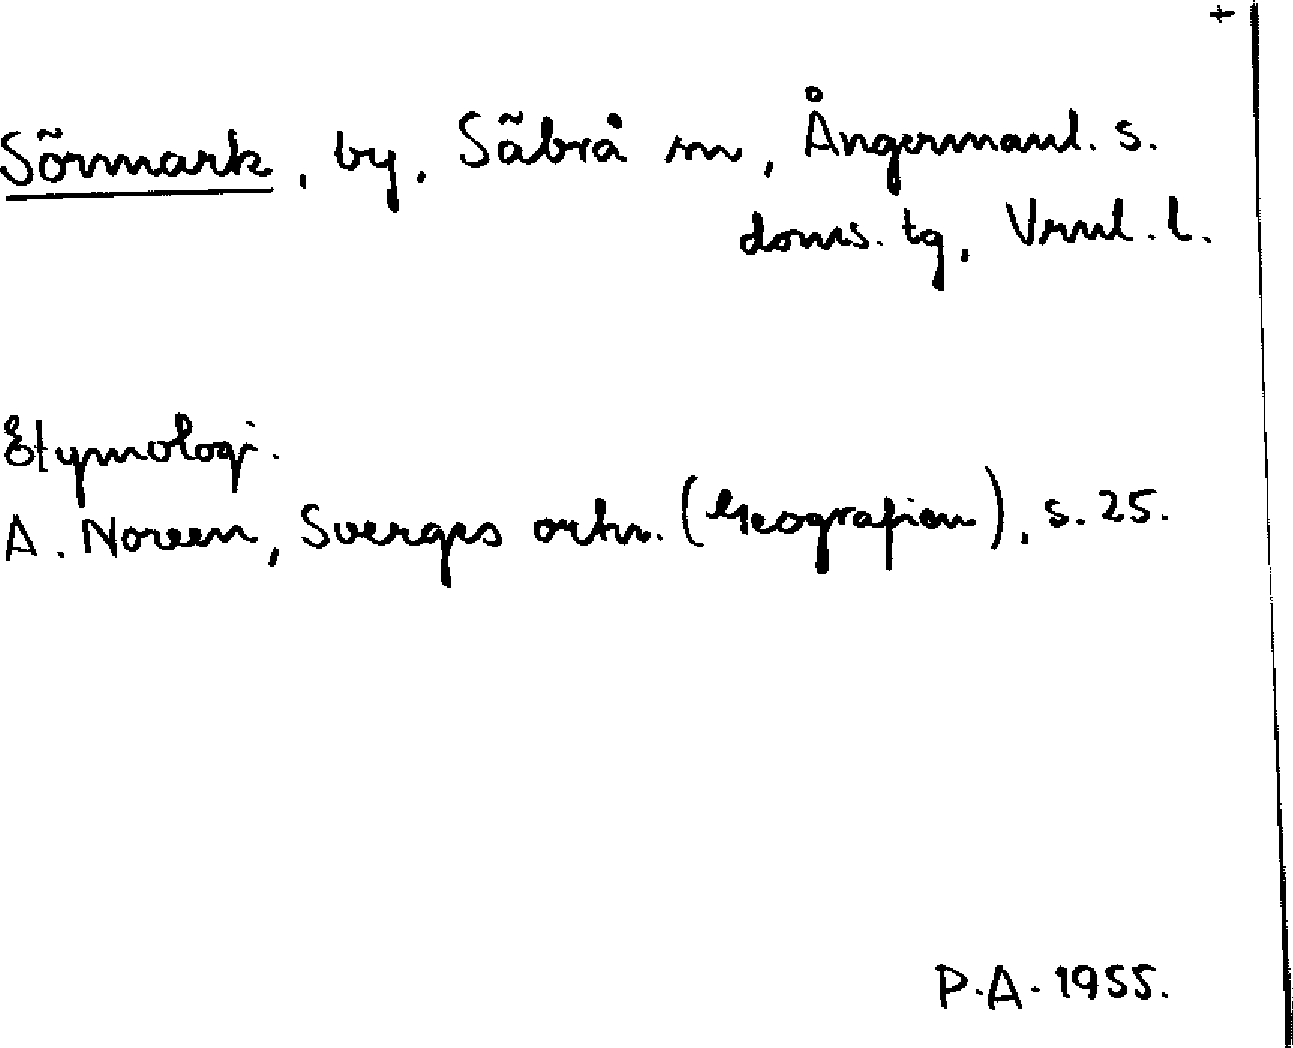 +
Sõrmark, by, Säbrå sn, Ångermanl. s.
doms. tg, Vrnl. l.
Etymologi.
A. Noreen, Sverges ortn. (Geografien), s. 25.
P.A. 1955.